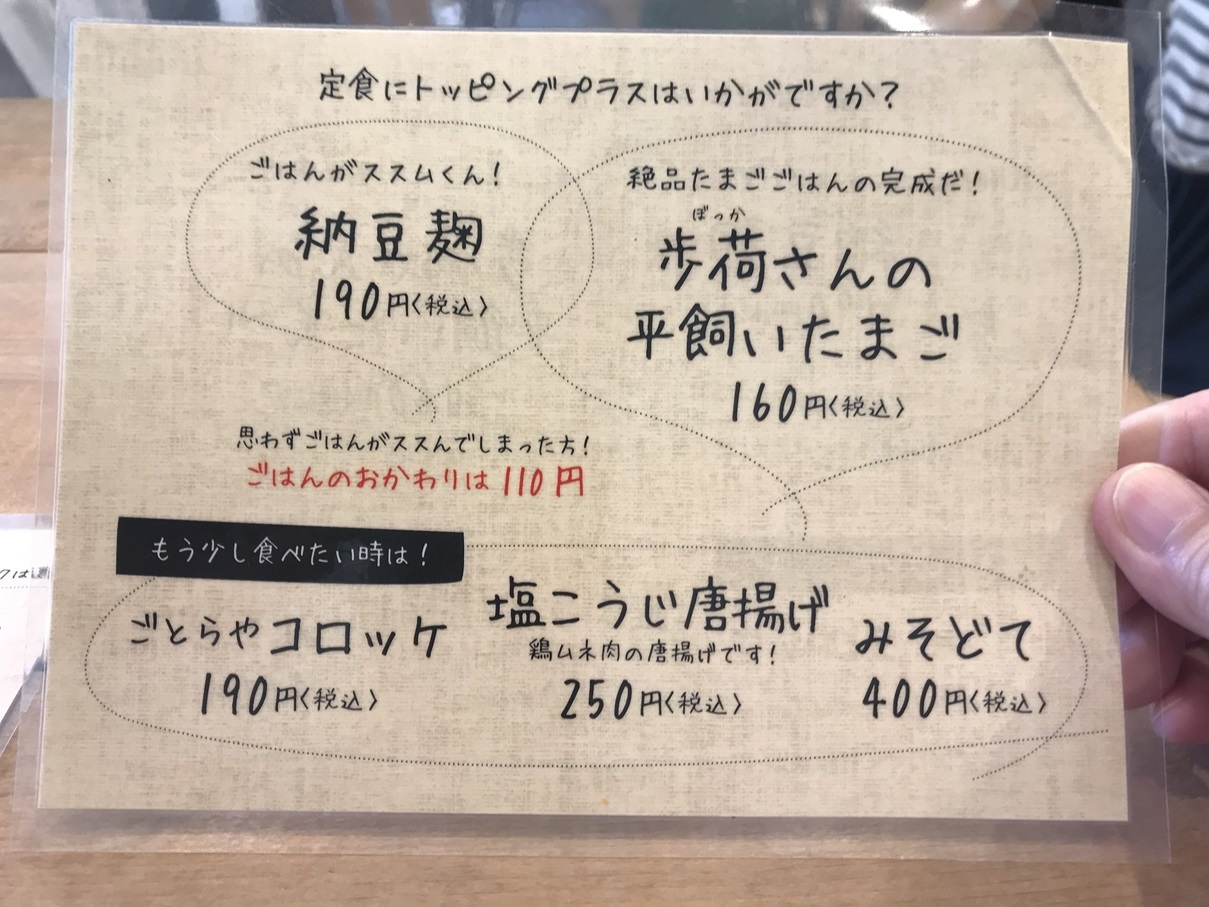 定食にトッピングプラスはいかがですか？
ごはんがススムくん！
納豆麹
190円〈税込〉
絶品たまごごはんの完成だ！
ぼっか
歩荷さんの
平飼いたまご
160円〈税込〉
思わずごはんがススんでしまった方！
ごはんのおかわりは110円
もう少し食べたい時は！
ごとらやコロッケ
190円〈税込〉
塩こうじ唐揚げ
鶏ムネ肉の唐揚げです！
250円〈税込〉
みそどて
400円〈税込〉